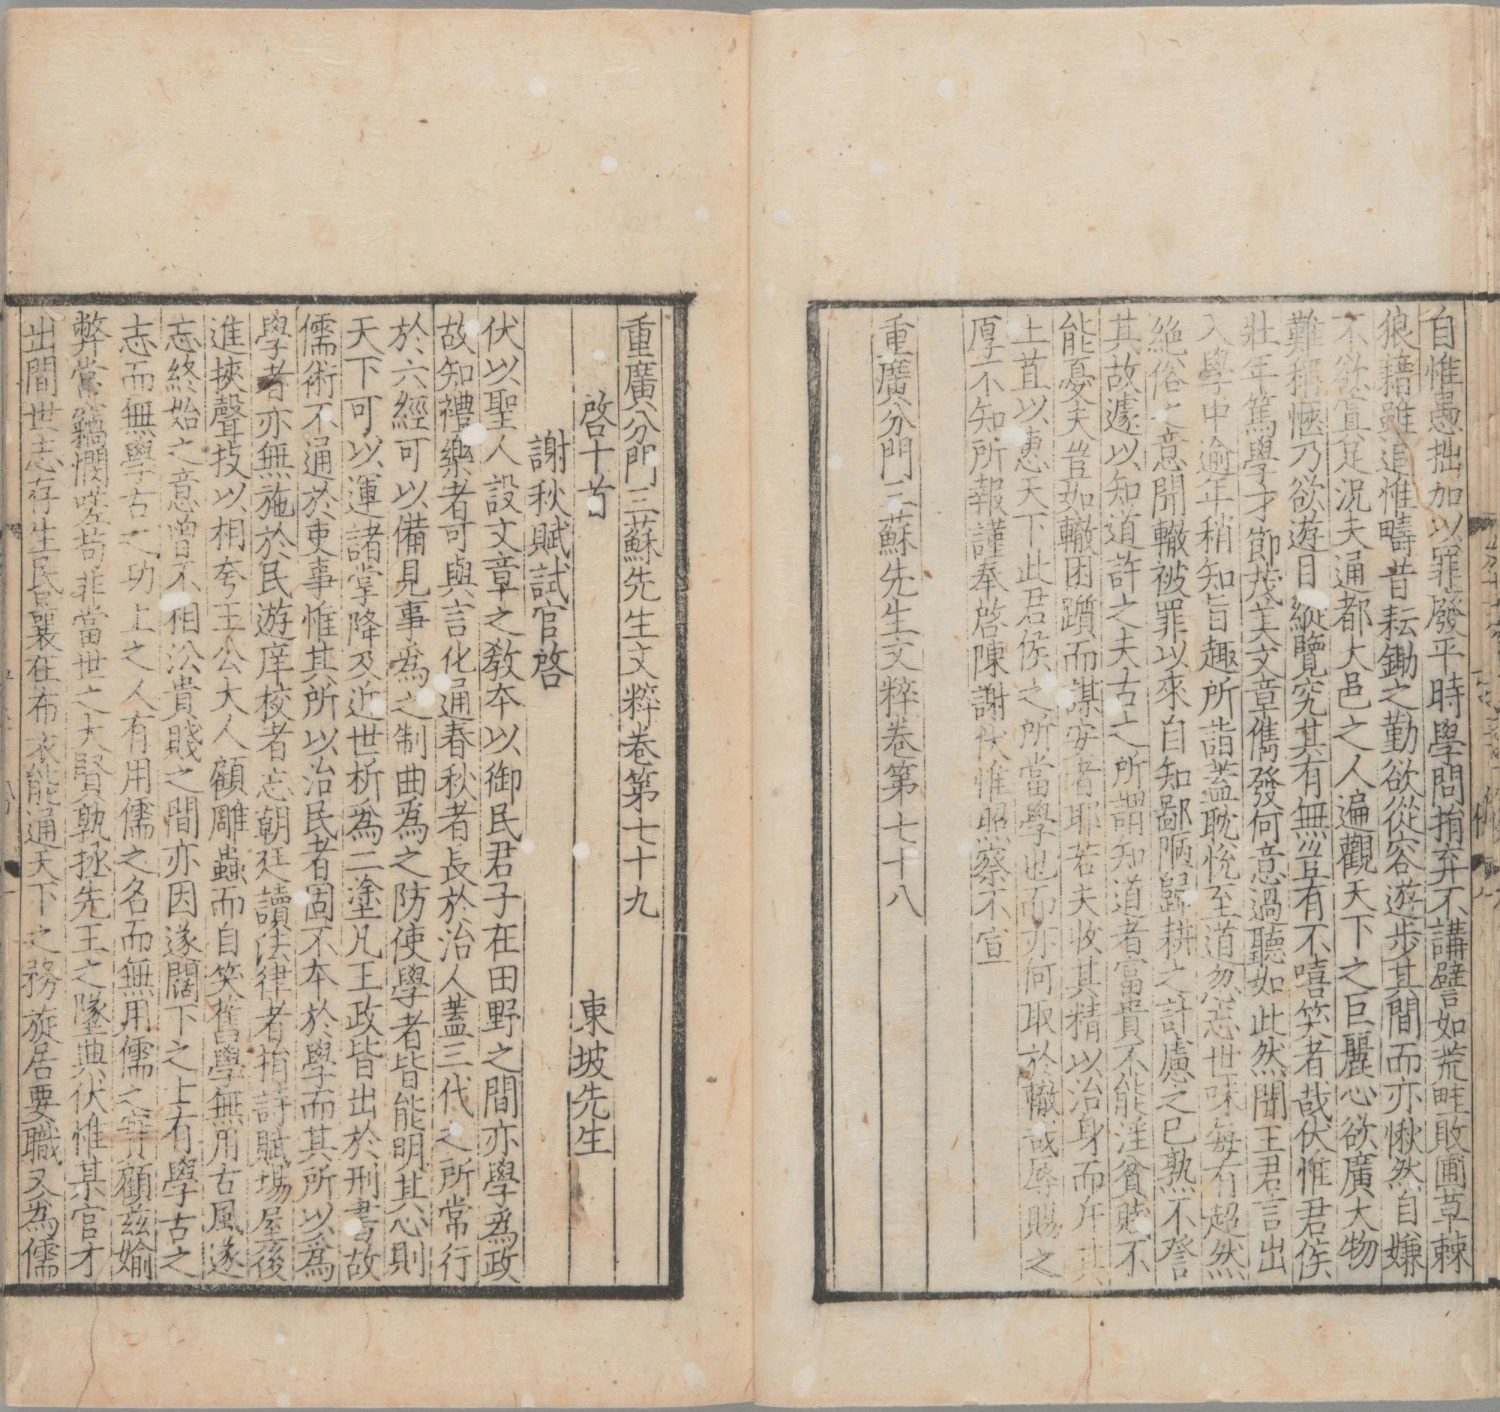 自惟愚拙加以罪廢平時學問捐弃不講譬如荒畦敗圃草棘
狼藉雖追惟疇昔耘鋤之勤欲從容遊步其間而亦愀然自嫌
不欲寘足況夫通都大邑之人遍觀天下之巨麗心欲廣大物
難稱愜乃欲遊目縱覽究其有無豈有不嘻笑者哉伏惟君侯
壯年篤學才節茂美文章儁發何意過聽如此然聞王君言出
入學中逾年稍知旨趣所詣蓋耽悅至道忽忘世味每有超然
絕俗之意聞轍被罪以來自知鄙陋歸耕之計慮之已熟不咎
其故遽以知道許之夫古之所謂知道者富貴不能淫貧賤不
能憂夫豈如轍困躓而謀安者耶若夫收其精以治身而斥其
上苴以惠天下此君侯之所當學也而亦何取於轍誠辱賜之
厚不知所報謹奉啓陳謝伏惟照察不宣
重廣分門三蘇先生文粹卷第七十八
重廣分門三蘇先生文粹卷第七十九
啓十首 東坡先生
謝秋賦試官啓
伏以聖人設文章之教本以御民君子在田野之間亦學為政
故知禮樂者可與言化通春秋者長於治人蓋三代之所常行
於六經可以備見事為之制曲為之防使學者皆能明其心則
天下可以運諸掌降及近世析為二塗凡王政皆出於刑書故
儒術不通於吏事惟其所以治民者固不本於學而其所以為
學者亦無施於民遊庠校者忘朝廷讀法律者捐詩賦場屋後
進挾聲技以相夸王公大人顧雕蟲而自笑舊學無用古風遂
忘終始之意曾不相沿貴賤之間亦因遂闊下之士有學古之
志而無學古之功上之人有用儒之名而無用儒之實顧茲媮
弊常竊憫嗟苟非當世之大賢孰拯先王之墜典伏惟某官才
出間世志存生民曩在布衣能通天下之務旋居要職又為儒